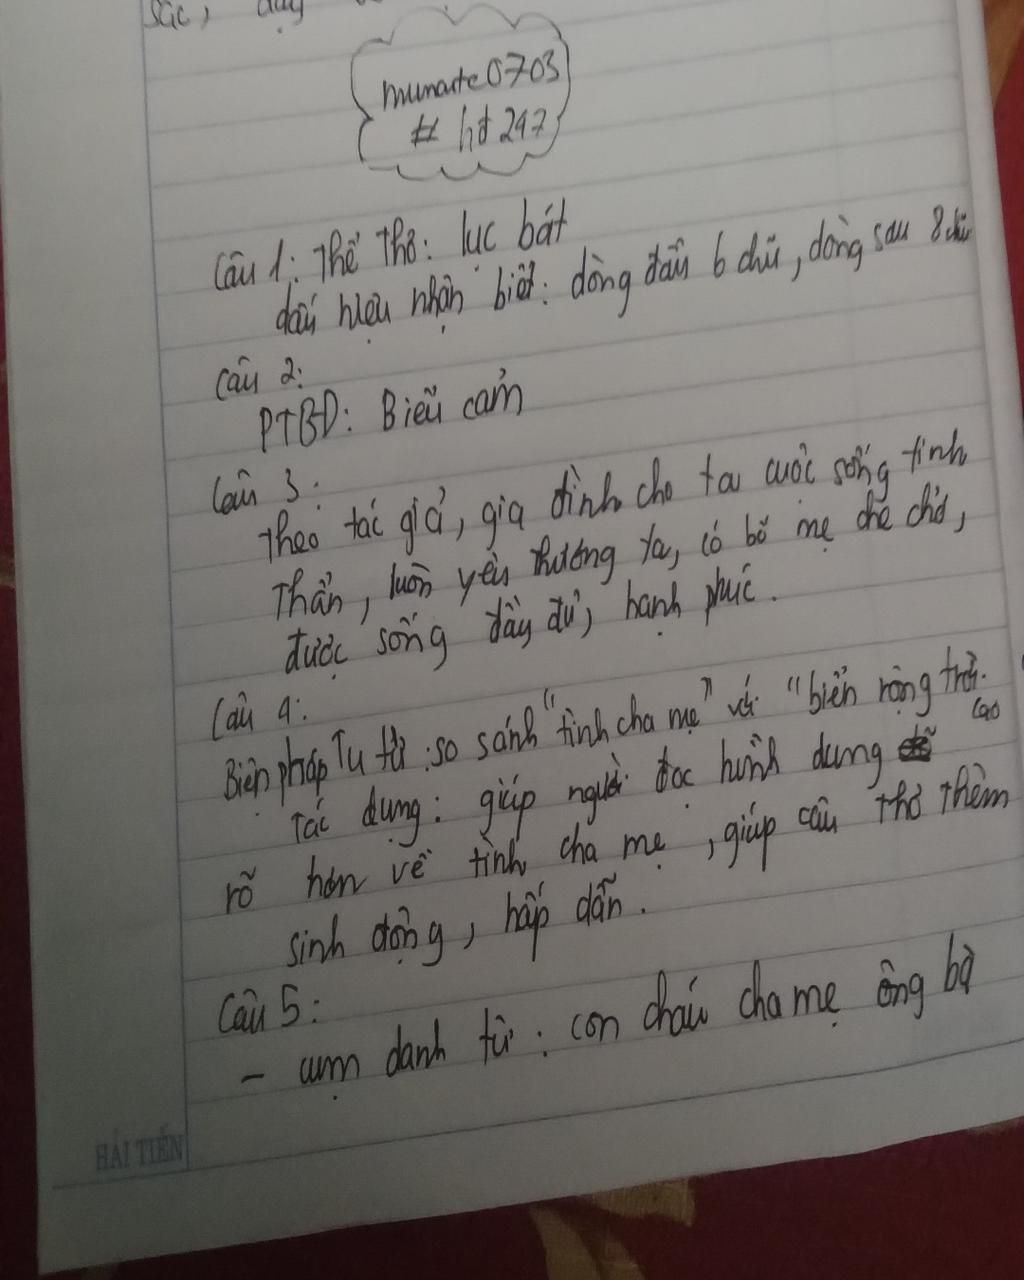 sắc, dạy
munarte0703
# hđ 247
Câu 1: Thể thơ: lục bát
dấu hiệu nhận biết: dòng đầu 6 chữ, dòng sau 8 chữ
Câu 2:
PTBĐ: Biểu cảm
Câu 3:
Theo tác giả, gia đình cho ta cuộc sống tinh
thần, luôn yêu thương ta, có bố mẹ che chở,
được sống đầy đủ, hạnh phúc.
Câu 4:
Biện pháp Tu từ: so sánh "tình cha mẹ" với "biển rộng trời
cao
Tác dụng: giúp người đọc hình dung
rõ hơn về tình cha mẹ, giúp câu thơ thêm
sinh động, hấp dẫn.
Câu 5:
- cụm danh từ: con cháu cha mẹ ông bà
HẢI TIẾN